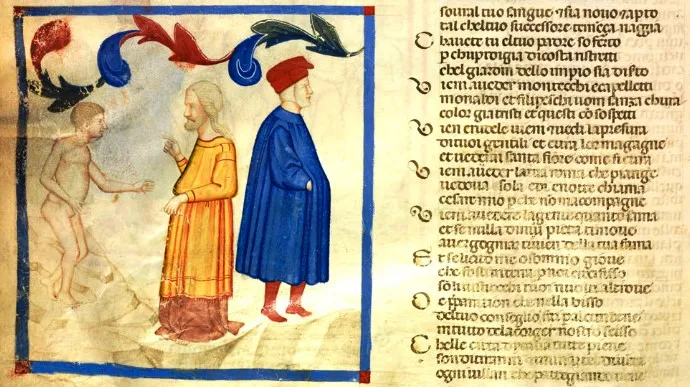 sovral tuo sangue 7 sia novo 7 apto
tal cheltuo successore temença naggia
C havete tu eltuo padre soferto
p chupidigia dicosta distretti
chel giardin dello imperio sia diserto
V ieni aveder montecchi ecapelletti
monaldi et filipeschi uom sança chura
color gia tristi et questi co sospetti
V ien crudele vieni 7 vedi lapresura
dituoi gentili et cura lor magagne
et vedrai santa fiore come si cura
V ieni aveder latua roma che piange
vedova sola edi enotte chiama
cesar mio pche no macompagne
V ieni avedere lagente quanto sama
et se nulla dinoi pieta timove
avergognar tivien della tua fama
E t selicito me osommo giove
che fosti interra p noi
son li tuoi rivolti altrove
O e che nella bisso
deltuo conseglio fai p alcun bene
in tutto dela corger nostro scisso
C helle citta ditalia tutte piene
son ditiranni diventa
ogni villan che parteggiando viene